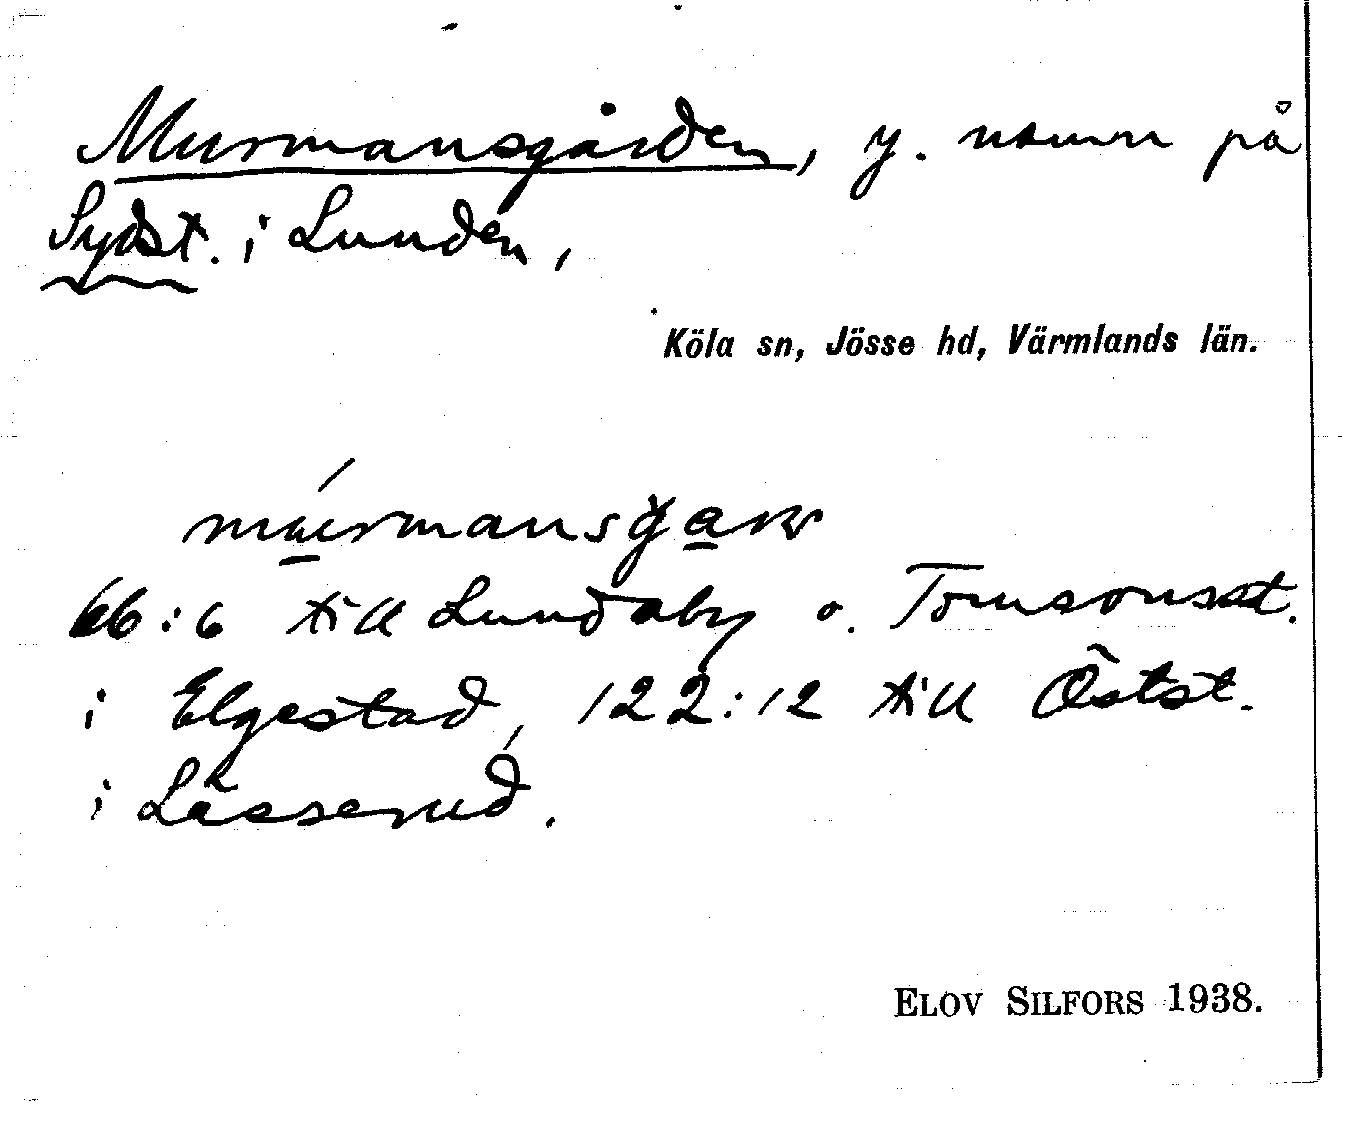 Murmansgården, y. namn på
Sydst. i Lunden,
Köla sn, Jösse hd, Värmlands län.
66:6 till Lundaby o. Tomsonsst.
i Elgestad, 122:12 till Östst.
i Lässerud.
ELOV SILFORS 1938.